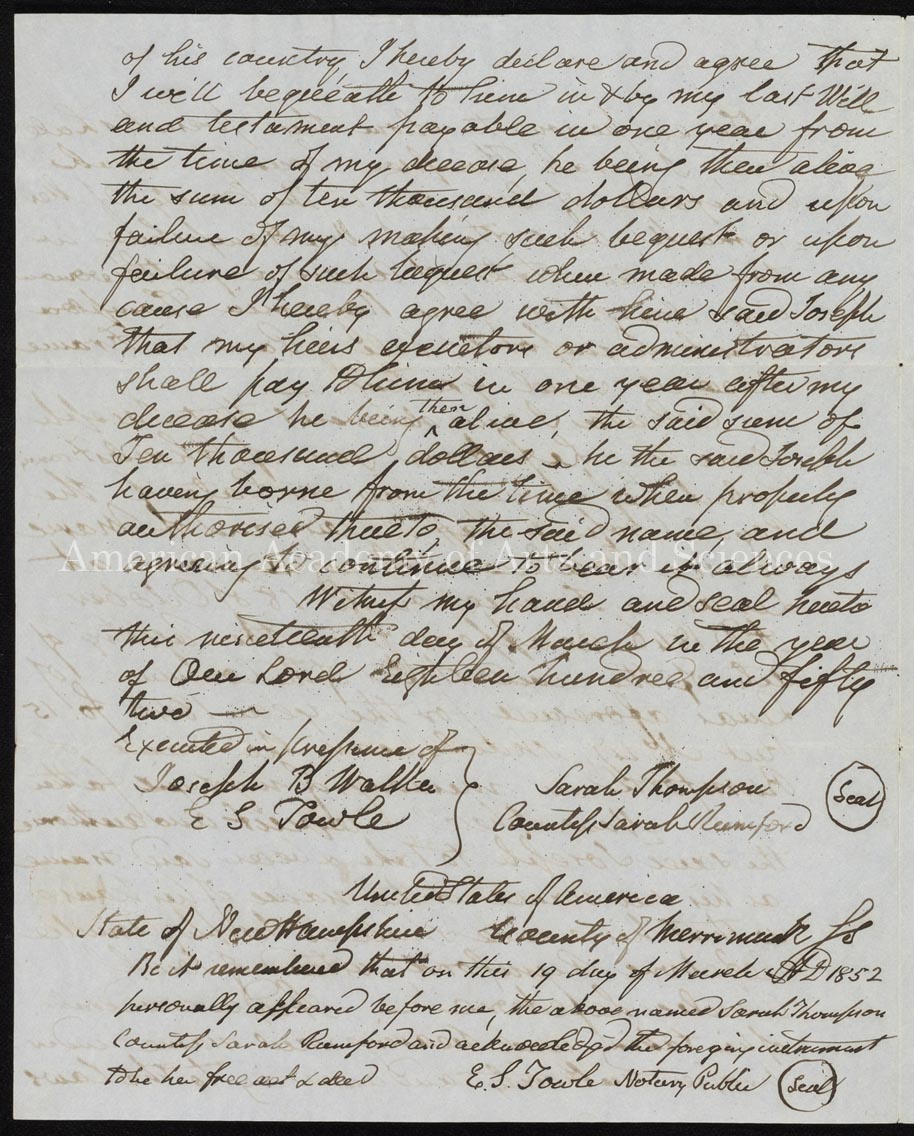 of his country, I hereby declare and agree that
I will bequeath to him in & by my last Will
and testament payable in one year from
the time of my decease, he being then alive
the sum of ten thousand dollars and upon
failure of my making such bequest or upon
failure of such bequest when made from any
cause I hereby agree with him said Joseph
that my heirs executors or administrators
shall pay to him in one year after my
decease he being then alive, the said sum of
Ten thousand dollars, he the said Joseph
having borne from the time when properly
authorised thereto, the said name, and
agreeing to continue to bear it always
American Academy of Arts and Sciences
Witness my hand and seal hereto
this nineteenth day of March in the year
of Our Lord Eighteen hundred and fifty
two —
Executed in presence of
Joseph B Walker
E S Towle
Sarah Thompson
Countess Sarah Rumford
Seal
United States of America
State of New Hampshire County of Merrimack Ss
Be it remembered that on this 19 day of March AD 1852
personally appeared before me, the above named Sarah Thompson
Countess Sarah Rumford and acknowledged the foregoing instrument
to be her free act & deed E. S. Towle Notary Public Seal